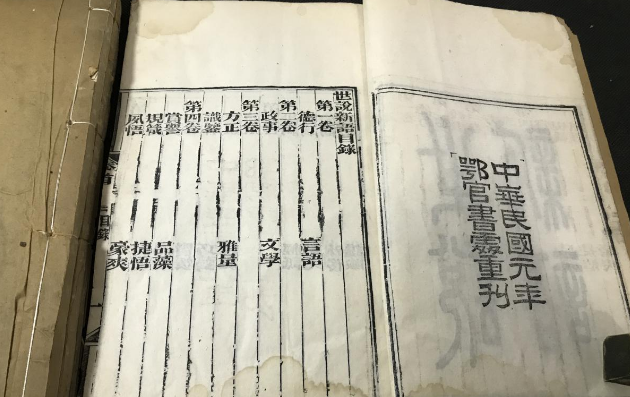 中華民國元年
鄂官書處重刊
世說新語目錄
第一卷
德行 言語
第二卷
政事 文學
第三卷
方正 雅量
識鑒
第四卷
賞譽 品藻
規箴 捷悟
夙悟 豪爽
目錄